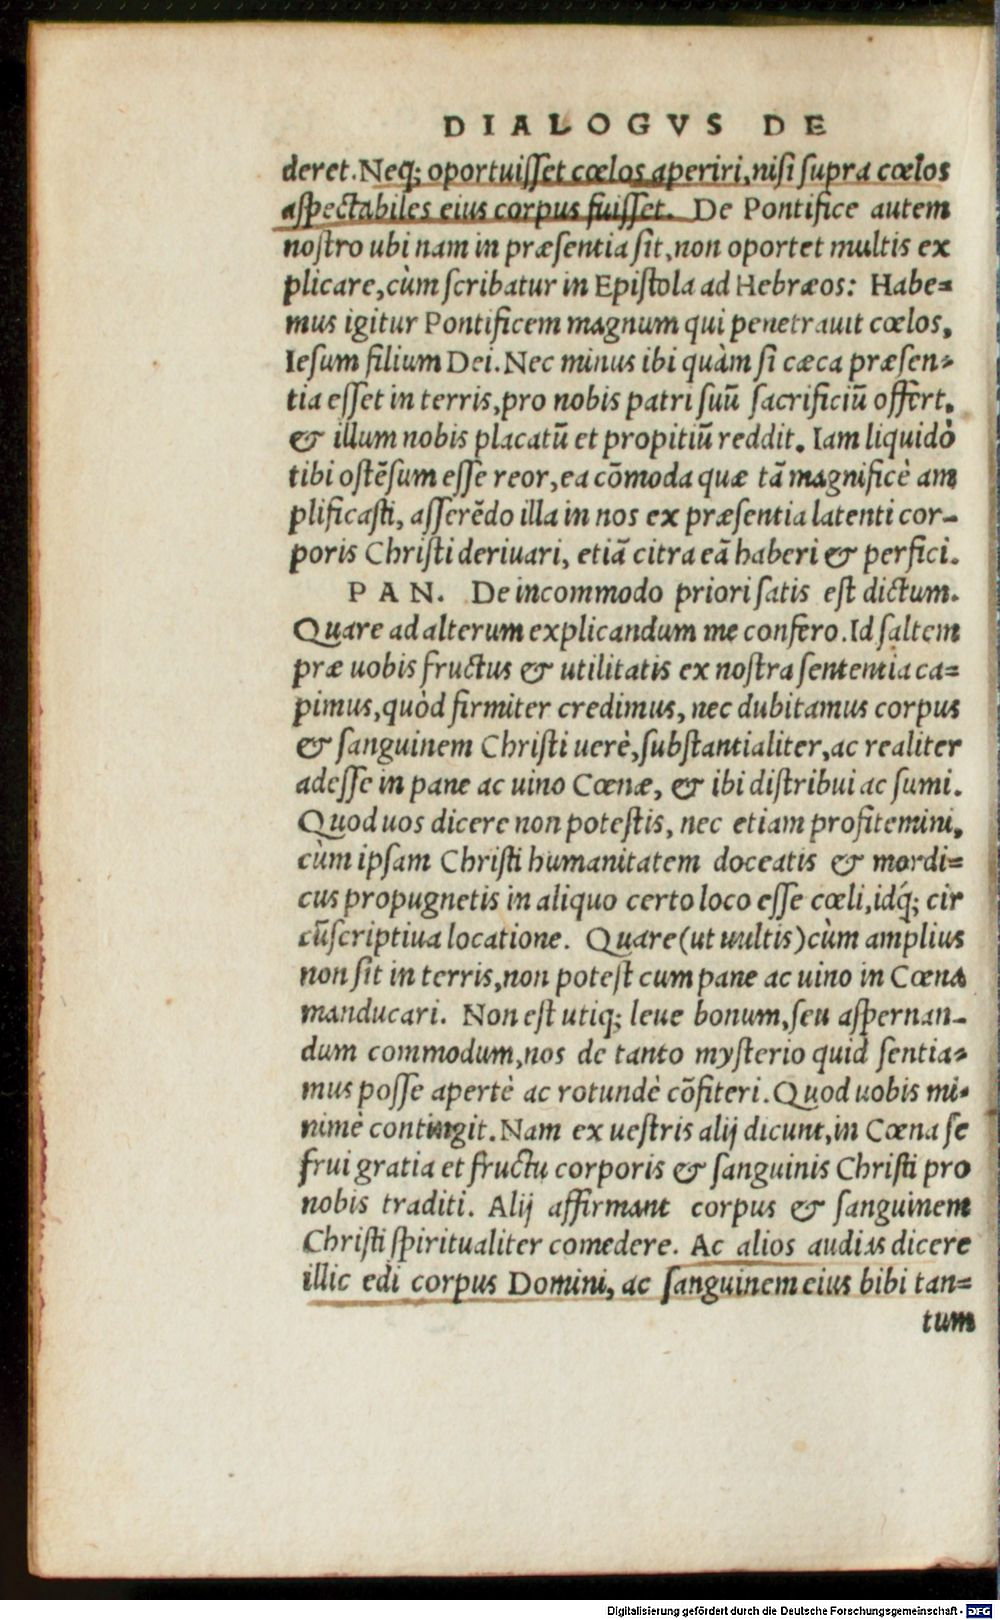 DIALOGVS DE
deret. Neq; oportuisset cœlos aperiri, nisi supra cœlos
aspectabiles eius corpus fuisset. De Pontifice autem
nostro ubi nam in præsentia sit, non oportet multis ex
plicare, cùm scribatur in Epistola ad Hebræos: Habe=
mus igitur Pontificem magnum qui penetrauit cœlos,
Iesum filium Dei. Nec minus ibi quàm si cæca præsen=
tia esset in terris, pro nobis patri suũ sacrificiũ offert,
& illum nobis placatũ et propitiũ reddit. Iam liquidò
tibi ostẽsum esse reor, ea cõmoda quæ tã magnificè am
plificasti, asserẽdo illa in nos ex præsentia latenti cor-
poris Christi deriuari, etiã citra eã haberi & perfici.
PAN. De incommodo priori satis est dictum.
Quare ad alterum explicandum me confero. Id saltem
præ uobis fructus & utilitatis ex nostra sententia ca=
pimus, quòd firmiter credimus, nec dubitamus corpus
& sanguinem Christi uerè, substantialiter, ac realiter
adesse in pane ac uino Cœnæ, & ibi distribui ac sumi.
Quod uos dicere non potestis, nec etiam profitemini,
cùm ipsam Christi humanitatem doceatis & mordi=
cus propugnetis in aliquo certo loco esse cœli, idq́; cir
cũscriptiua locatione. Quare (ut uultis) cùm amplius
non sit in terris, non potest cum pane ac uino in Cœna
manducari. Non est utiq; leue bonum, seu aspernan-
dum commodum, nos de tanto mysterio quid sentia=
mus posse apertè ac rotundè cõfiteri. Quod uobis mi=
nimè contingit. Nam ex uestris alij dicunt, in Cœna se
frui gratia et fructu corporis & sanguinis Christi pro
nobis traditi. Alij affirmant corpus & sanguinem
Christi spiritualiter comedere. Ac alios audias dicere
illic edi corpus Domini, ac sanguinem eius bibi tan=
tum
Digitalisierung gefördert durch die Deutsche Forschungsgemeinschaft - DFG